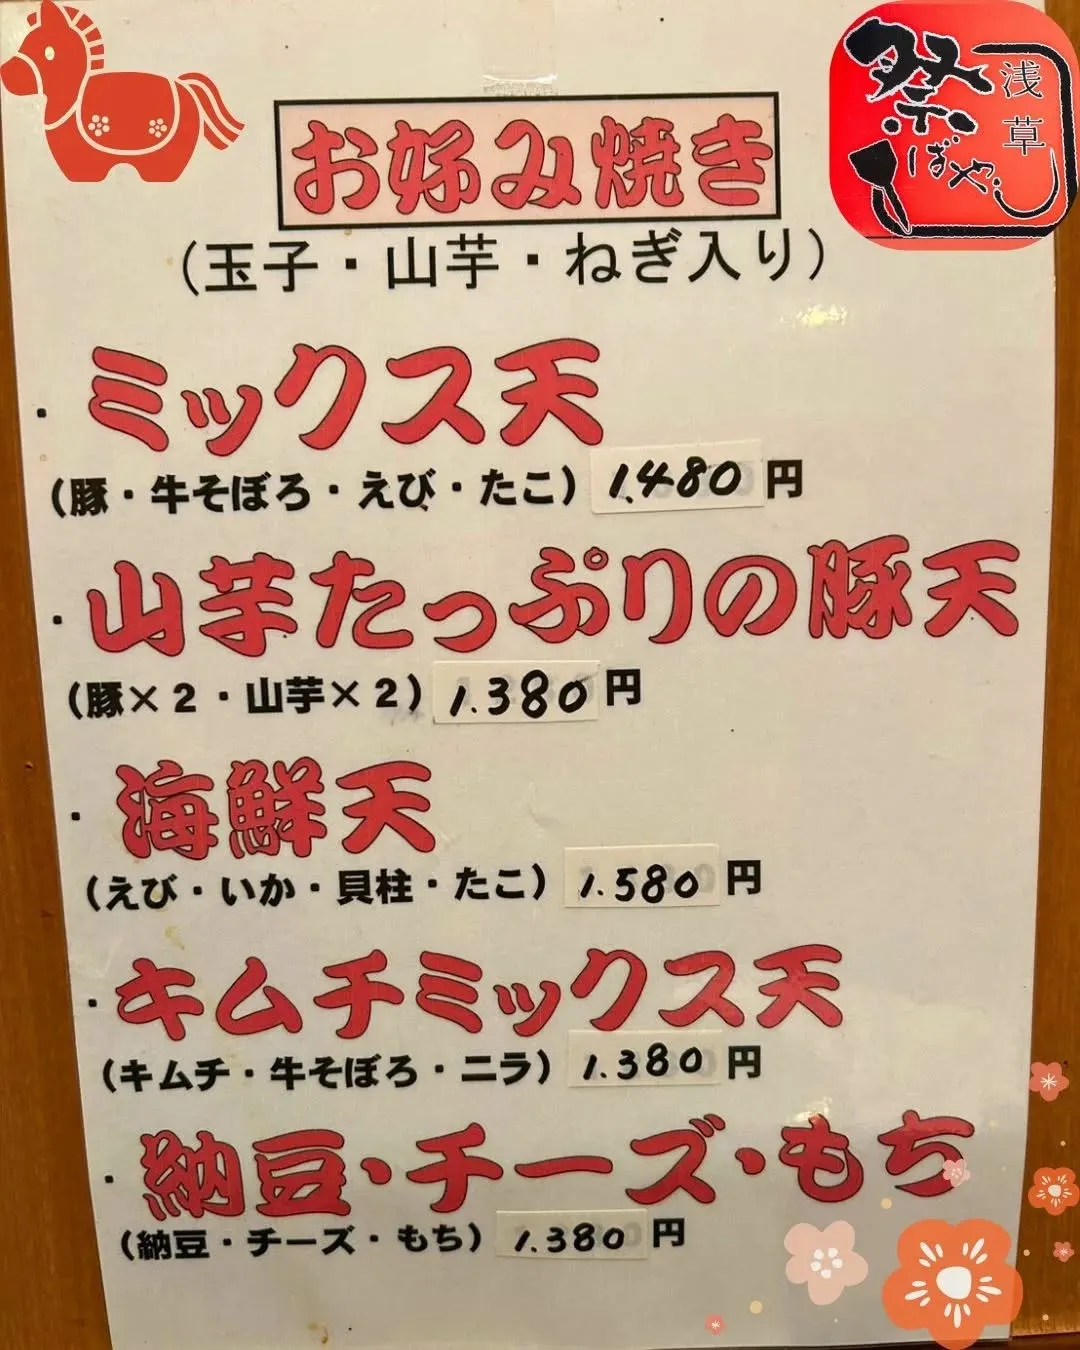 浅草
祭ばやし
お好み焼き
(玉子・山芋・ねぎ入り)
・ミックス天
(豚・牛そぼろ・えび・たこ) 1.480円
・山芋たっぷりの豚天
(豚×2・山芋×2) 1.380円
・海鮮天
(えび・いか・貝柱・たこ) 1.580円
・キムチミックス天
(キムチ・牛そぼろ・ニラ) 1.380円
・納豆・チーズ・もち
(納豆・チーズ・もち) 1.380円